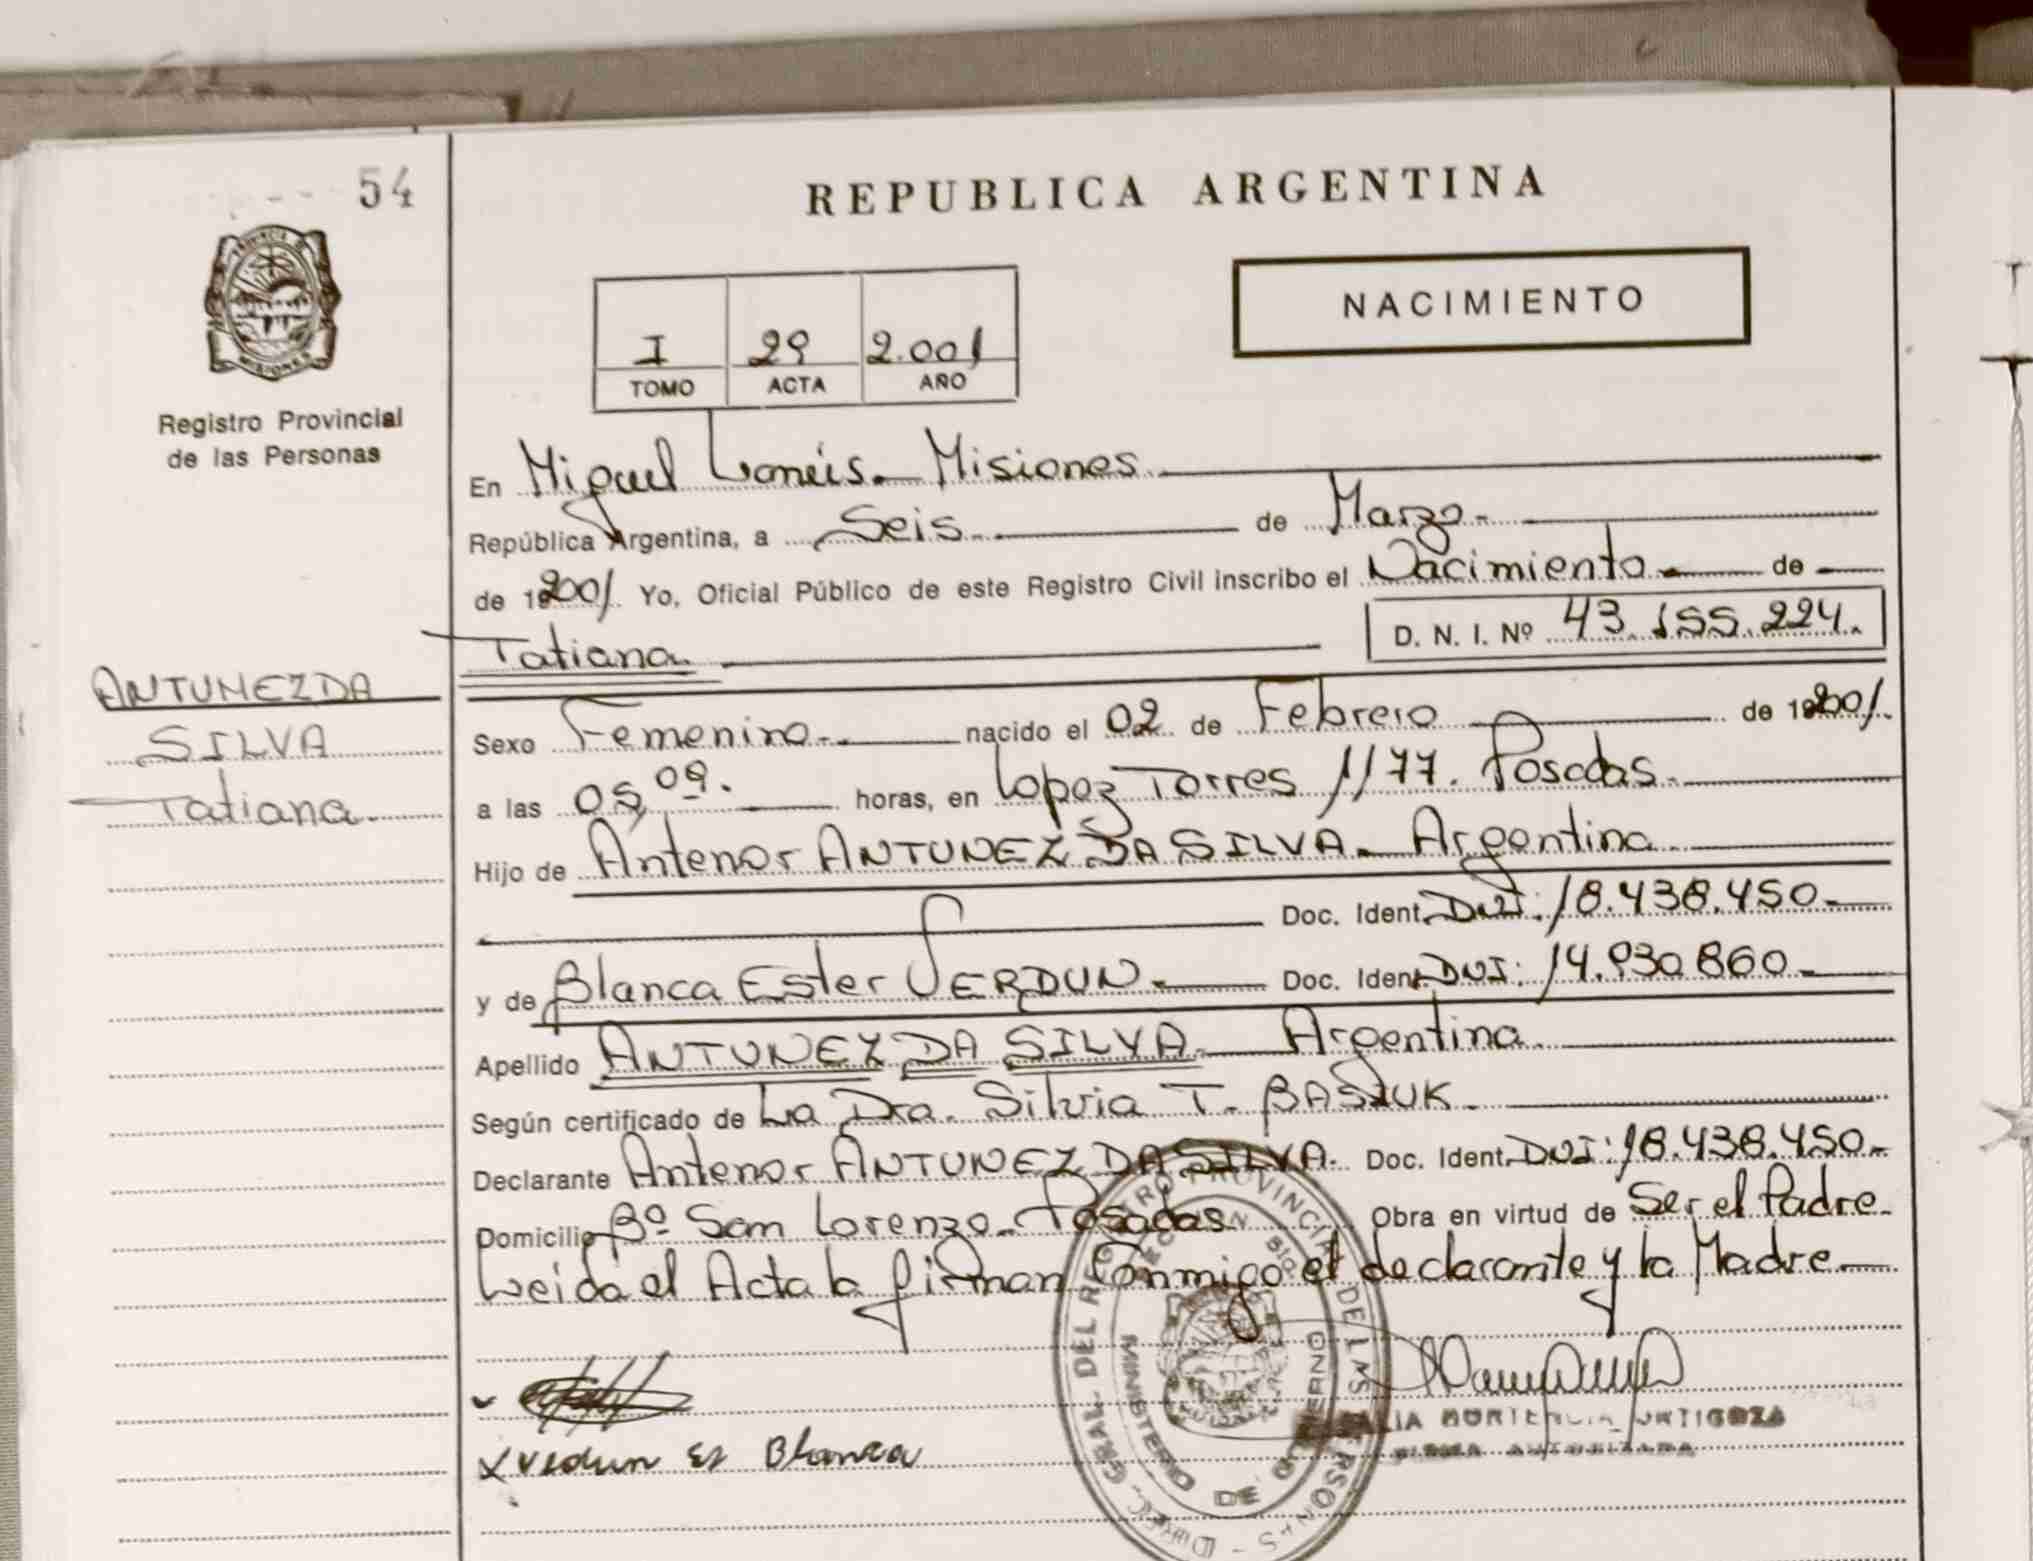 54
REPUBLICA ARGENTINA
NACIMIENTO
I 29 2.001
TOMO ACTA AÑO
Registro Provincial
de las Personas
En Miguel Lanús. Misiones
República Argentina, a Seis de Marzo
de 192001. Yo, Oficial Público de este Registro Civil inscribo el Nacimiento de
Tatiana D. N. I. Nº 43.155.224.
ANTUNEZ DA
SILVA
Tatiana
Sexo Femenino nacido el 02 de Febrero de 192001.
a las 05 09. horas, en Lopez Torres 1177. Posadas
Hijo de Antenor ANTUNEZ DA SILVA. Argentina
Doc. Ident. DNI: 18.438.450
y de Blanca Ester VERDUN. Doc. Ident. DNI: 14.930.860
Apellido ANTUNEZ DA SILVA Argentina
Según certificado de La Dra. Silvia T. BASIUK
Declarante Antenor ANTUNEZ DA SILVA. Doc. Ident. DNI: 18.438.450
Domicilio Bº San Lorenzo Posadas Obra en virtud de Ser el Padre
Leida el Acta la firman Conmigo el declarante y la Madre
x vedun es Blanca
DIREC. GRAL. DEL REGISTRO PROVINCIAL DE LAS PERSONAS
MINISTERIO DE GOBIERNO
ORTIGOZA